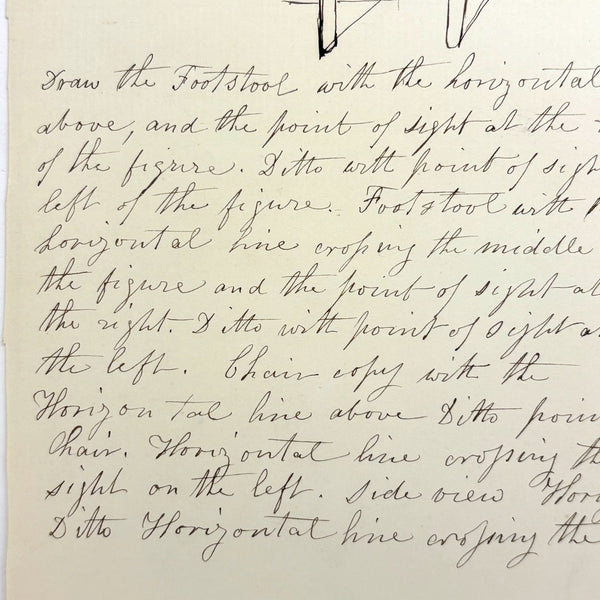 Draw the Footstool with the horizontal
above, and the point of sight at the
of the figrure. Ditto witt point of sigh
left of the figure. Footstool with
horizontal line crossing the middle
the figure and the point of sight at
the right. Ditto with point of sight a
the left. Chair copy with the
Horizontal line above Ditto poin
Chair. Horizontal line crossing th
sight on the left. Side view Hori
Ditto Horizontal line crossing the